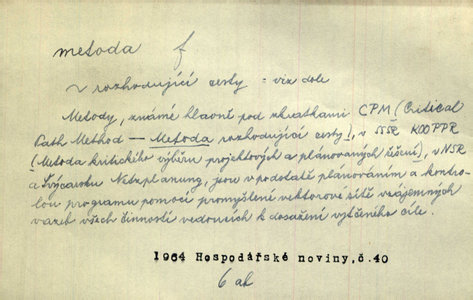 metoda f
~ rozhodující cesty = viz dole
Metody, známé hlavně pod zkratkami CPM (Critical
Path Method – Metoda rozhodující cesty), v SSSR KOOPPR
(Metoda kritického výběru projektových a plánovaných řešení), v NSR
a Švýcarsku Netzplanung, jsou v podstatě plánováním a kontro-
lou programu pomocí promyšlené vektorové sítě vzájemných
vazeb všech činností vedoucích k dosažení vytčeného cíle.
1964 Hospodářské noviny, č.40
6 ab